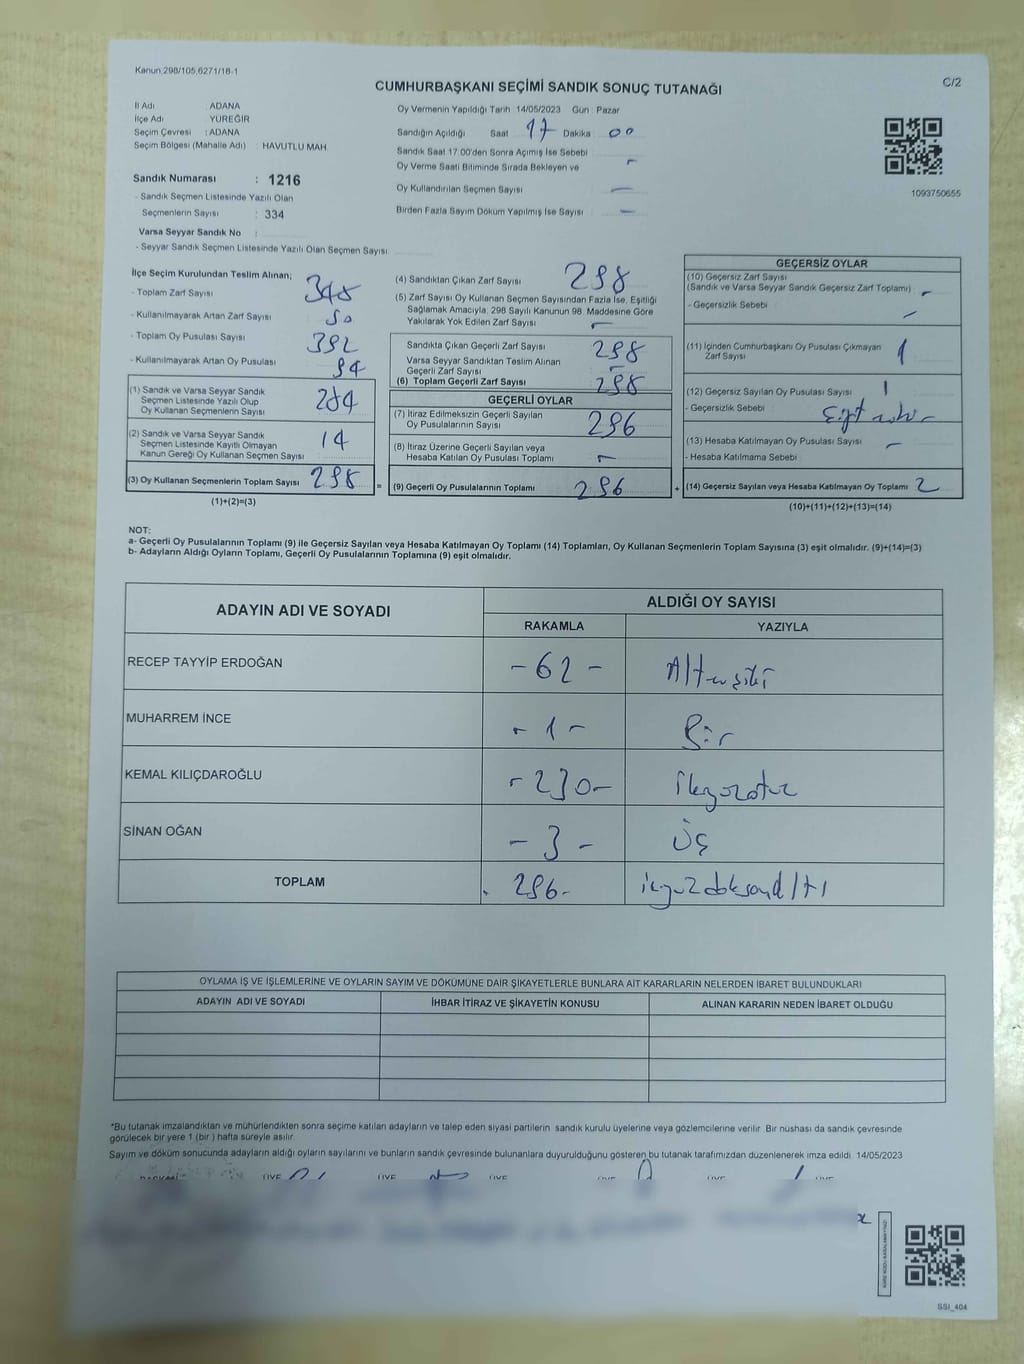 Kanun;298/105,6271/18-1
CUMHURBAŞKANI SEÇİMİ SANDIK SONUÇ TUTANAĞI
C/2
İl Adı ADANA
İlçe Adı YÜREĞİR
Seçim Çevresi : ADANA
Seçim Bölgesi (Mahalle Adı) : HAVUTLU MAH
Sandık Numarası : 1216
- Sandık Seçmen Listesinde Yazılı Olan
Seçmenlerin Sayısı : 334
Varsa Seyyar Sandık No :
- Seyyar Sandık Seçmen Listesinde Yazılı Olan Seçmen Sayısı
Oy Vermenin Yapıldığı Tarih 14/05/2023 Gün : Pazar
Sandığın Açıldığı Saat 17 Dakika 00
Sandık Saat 17:00'den Sonra Açımış İse Sebebi
Oy Verme Saati Bitiminde Sırada Bekleyen ve -
Oy Kullandırılan Seçmen Sayısı -
Birden Fazla Sayım Döküm Yapılmış İse Sayısı -
1093750655
İlçe Seçim Kurulundan Teslim Alınan;
- Toplam Zarf Sayısı 348
- Kullanılmayarak Artan Zarf Sayısı 50
- Toplam Oy Pusulası Sayısı 392
- Kullanılmayarak Artan Oy Pusulası 94
(1) Sandık ve Varsa Seyyar Sandık
Seçmen Listesinde Yazılı Olup
Oy Kullanan Seçmenlerin Sayısı 284
(2) Sandık ve Varsa Seyyar Sandık
Seçmen Listesinde Kayıtlı Olmayan
Kanun Gereği Oy Kullanan Seçmen Sayısı 14
(3) Oy Kullanan Seçmenlerin Toplam Sayısı 298
(1)+(2)=(3)
(4) Sandıktan Çıkan Zarf Sayısı 298
(5) Zarf Sayısı Oy Kullanan Seçmen Sayısından Fazla İse, Eşitliği
Sağlamak Amacıyla, 298 Sayılı Kanunun 98. Maddesine Göre
Yakılarak Yok Edilen Zarf Sayısı -
Sandıkta Çıkan Geçerli Zarf Sayısı 298
Varsa Seyyar Sandıktan Teslim Alınan
Geçerli Zarf Sayısı -
(6) Toplam Geçerli Zarf Sayısı 298
GEÇERLİ OYLAR
(7) İtiraz Edilmeksizin Geçerli Sayılan
Oy Pusulalarının Sayısı 296
(8) İtiraz Üzerine Geçerli Sayılan veya
Hesaba Katılan Oy Pusulası Toplamı -
= (9) Geçerli Oy Pusulalarının Toplamı 296 +
GEÇERSİZ OYLAR
(10) Geçersiz Zarf Sayısı
(Sandık ve Varsa Seyyar Sandık Geçersiz Zarf Toplamı) -
- Geçersizlik Sebebi -
(11) İçinden Cumhurbaşkanı Oy Pusulası Çıkmayan
Zarf Sayısı 1
(12) Geçersiz Sayılan Oy Pusulası Sayısı 1
- Geçersizlik Sebebi
(13) Hesaba Katılmayan Oy Pusulası Sayısı -
- Hesaba Katılmama Sebebi
(14) Geçersiz Sayılan veya Hesaba Katılmayan Oy Toplamı 2
(10)+(11)+(12)+(13)=(14)
NOT:
a- Geçerli Oy Pusulalarının Toplamı (9) ile Geçersiz Sayılan veya Hesaba Katılmayan Oy Toplamı (14) Toplamları, Oy Kullanan Seçmenlerin Toplam Sayısına (3) eşit olmalıdır. (9)+(14)=(3)
b- Adayların Aldığı Oyların Toplamı, Geçerli Oy Pusulalarının Toplamına (9) eşit olmalıdır.
ADAYIN ADI VE SOYADI
ALDIĞI OY SAYISI
RAKAMLA
YAZIYLA
RECEP TAYYİP ERDOĞAN -62- Altmışiki
MUHARREM İNCE -1- Bir
KEMAL KILIÇDAROĞLU -230- ikiyüzotuz
SİNAN OĞAN -3- Üç
TOPLAM -296- ikiyüzdoksanaltı
OYLAMA İŞ VE İŞLEMLERİNE VE OYLARIN SAYIM VE DÖKÜMÜNE DAİR ŞİKAYETLERLE BUNLARA AİT KARARLARIN NELERDEN İBARET BULUNDUKLARI
ADAYIN ADI VE SOYADI
İHBAR İTİRAZ VE ŞİKAYETİN KONUSU
ALINAN KARARIN NEDEN İBARET OLDUĞU
*Bu tutanak imzalandıktan ve mühürlendikten sonra seçime katılan adayların ve talep eden siyasi partilerin sandık kurulu üyelerine veya gözlemcilerine verilir. Bir nüshası da sandık çevresinde
görülecek bir yere 1 (bir ) hafta süreyle asılır.
Sayım ve döküm sonucunda adayların aldığı oyların sayılarını ve bunların sandık çevresinde bulunanlara duyurulduğunu gösteren bu tutanak tarafımızdan düzenlenerek imza edildi. 14/05/2023
SSI_404